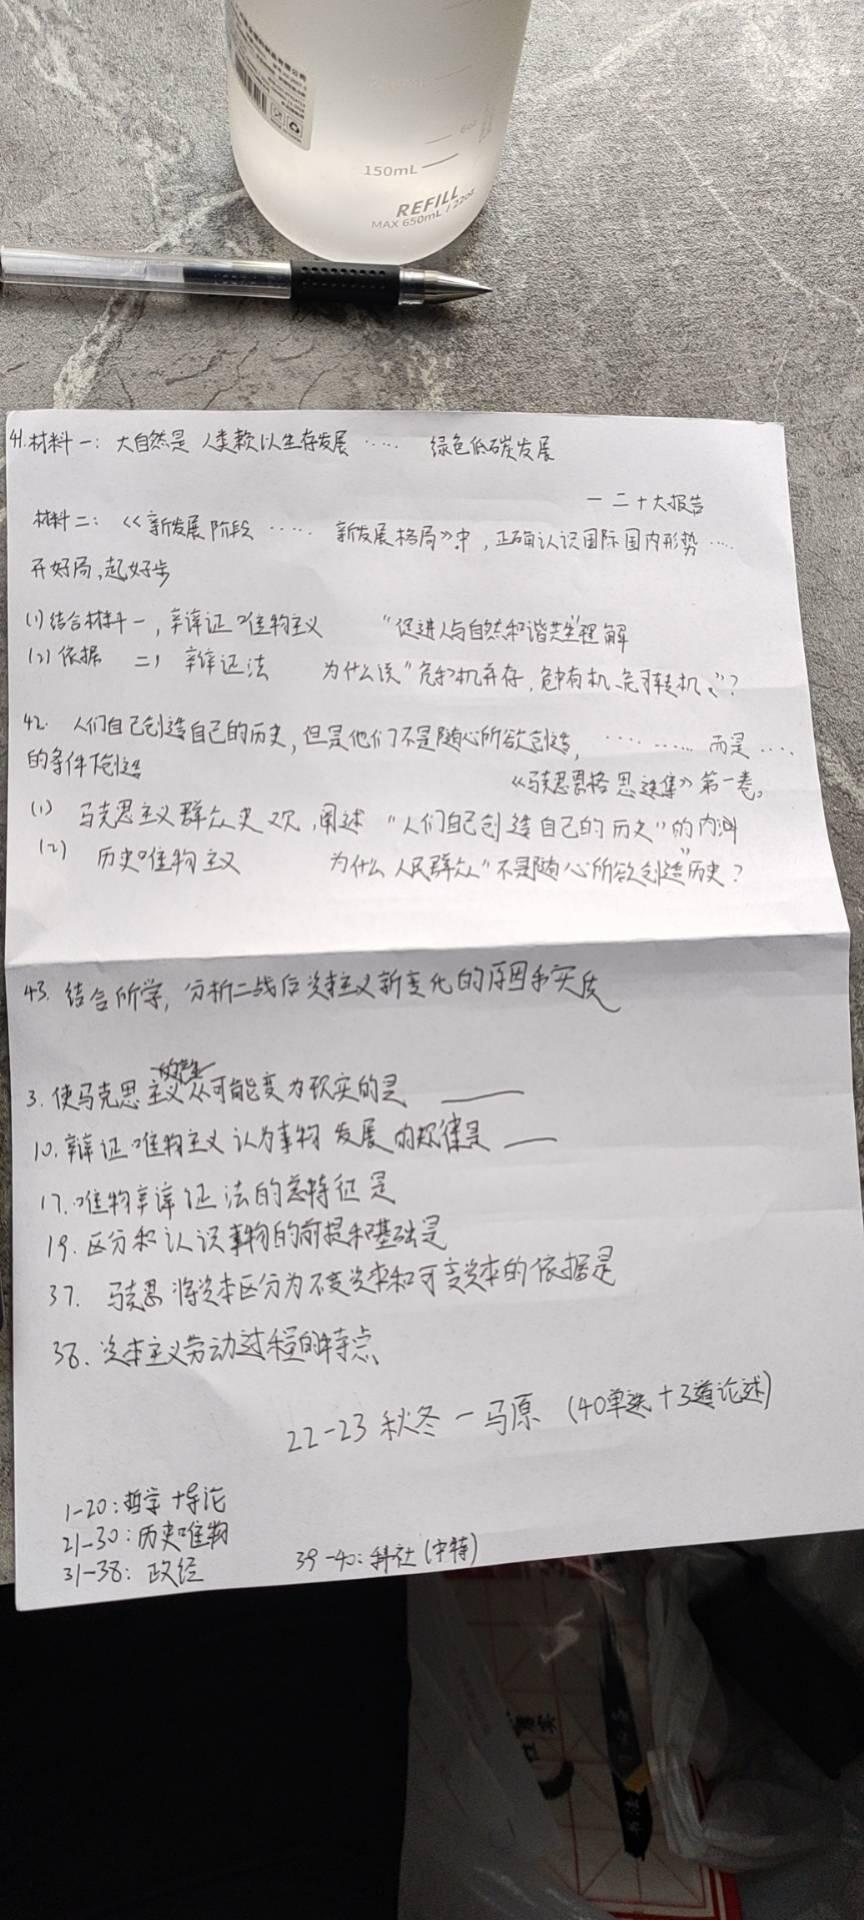 150mL
REFILL
MAX 650mL / 22oz
41.材料一: 大自然是 人类赖以生存发展 …… 绿色低碳发展
一二十大报告
材料二: 《新发展阶段 …… 新发展格局》中, 正确认识国际国内形势 ……
开好局,起好步
(1)结合材料一, 辩证唯物主义 "促进人与自然和谐共生"理解
(2)依据 二, 辩证法 为什么说"危和机并存,危中有机、危可转机、"?
42. 人们自己创造自己的历史,但是他们不是随心所欲创造, …… …… 而是 ……
的条件下创造
《马克思恩格思选集》第一卷。
(1) 马克思主义群众史观,阐述 "人们自己创造自己的历史"的内涵
(2) 历史唯物主义 为什么人民群众"不是随心所欲创造"历史?
43. 结合所学, 分析二战后资本主义新变化的原因和实质
3. 使马克思主义从可能变为现实的是 ____
10. 辩证唯物主义认为事物发展的规律是 ____
17. 唯物辩证法的总特征是
19. 区分和认识事物的前提和基础是
37. 马克思将资本区分为不变资本和可变资本的依据是
38. 资本主义劳动过程的特点
22-23 秋冬一马原 (40单选+3道论述)
1-20: 哲学+导论
21-30: 历史唯物
31-38: 政经 39-40: 科社(中特)